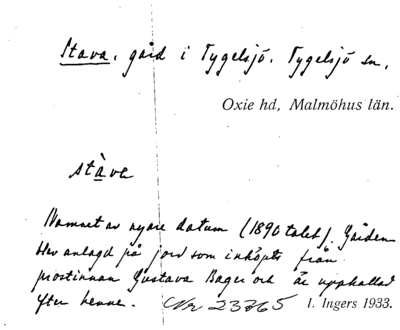 Stava, gård i Tygelsjö, Tygelsjö sn,
Oxie hd, Malmöhus län.
stàva
Namnet av nyare datum (1890 talet). Gården
blev anlagd på jord som inköpts från
prostinnan Gustava Bager och är uppkallad
efter henne. Nr 23765 I. Ingers 1933.